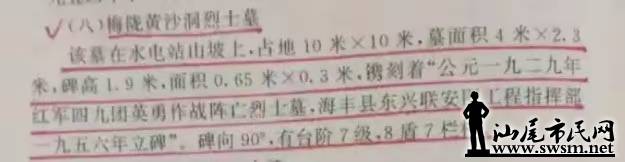 (八)梅陇黄沙洞烈士墓
该墓在水电站山坡上,占地10米×10米,墓面积4米×2.3
米,碑高1.9米,面积0.65米×0.3米,镌刻着“公元一九二九年
红军四九团英勇作战阵亡烈士墓,海丰县东兴联安 工程指挥部
一九五六年立碑”。碑向90°,有台阶7级,8盾7栏
汕尾市民网
www.swsm.net